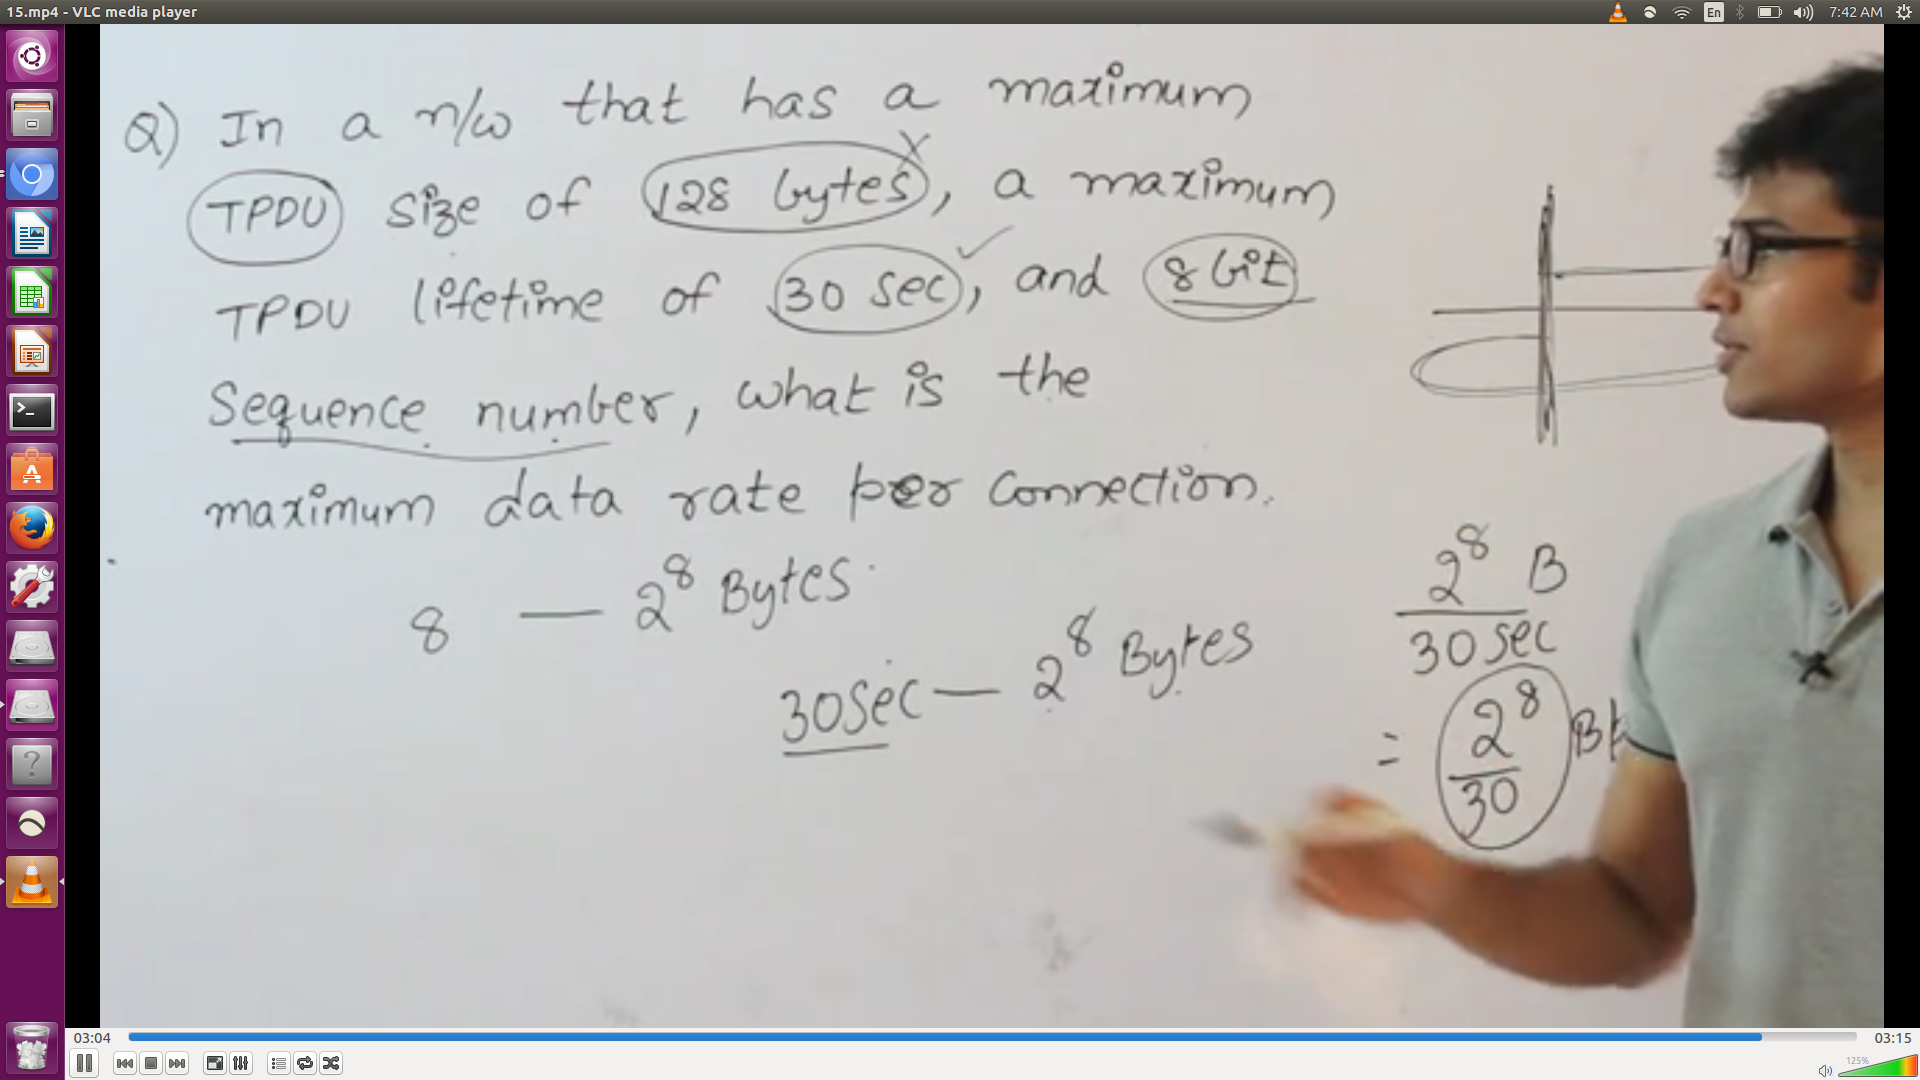 15.mp4 - VLC media player
En
7:42 AM
Q) In a n/w that has a maximum
TPDU size of 128 bytes, a maximum
TPDU lifetime of 30 sec, and 8 bit
Sequence number, what is the
maximum data rate per connection.
8 — 2^8 Bytes
30sec — 2^8 Bytes
2^8 B
30 sec
= 2^8
30
03:04
03:15
125%